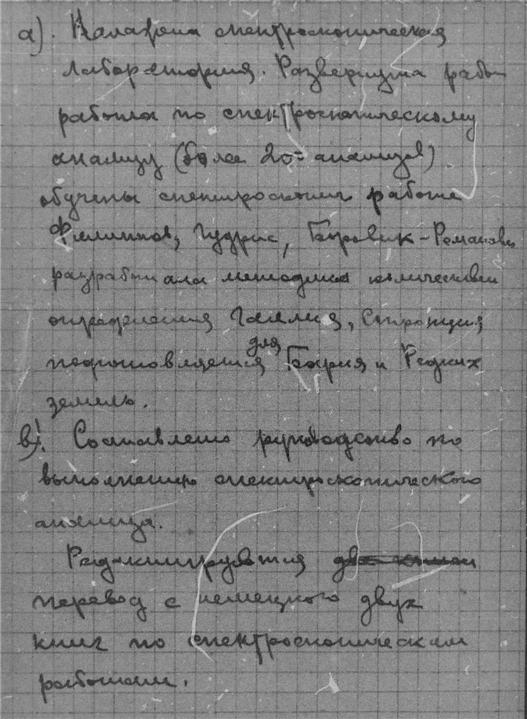 а). Налажена спектроскопическая
лаборатория. Развернута рабо
работа по спектроскопическому
анализу (более 20 анализов)
обучены спектроскопич работе
Филиппов, Гудрис, Боровик-Романова
разработана методика количествен
определения Галлия, Стронция
подготовляется для Бария и Редких
земель.
в). Составлено руководство по
выполнению спектроскопического
анализа.
Редактируется
перевод с немецкого двух
книг по спектроскопическим
работам.